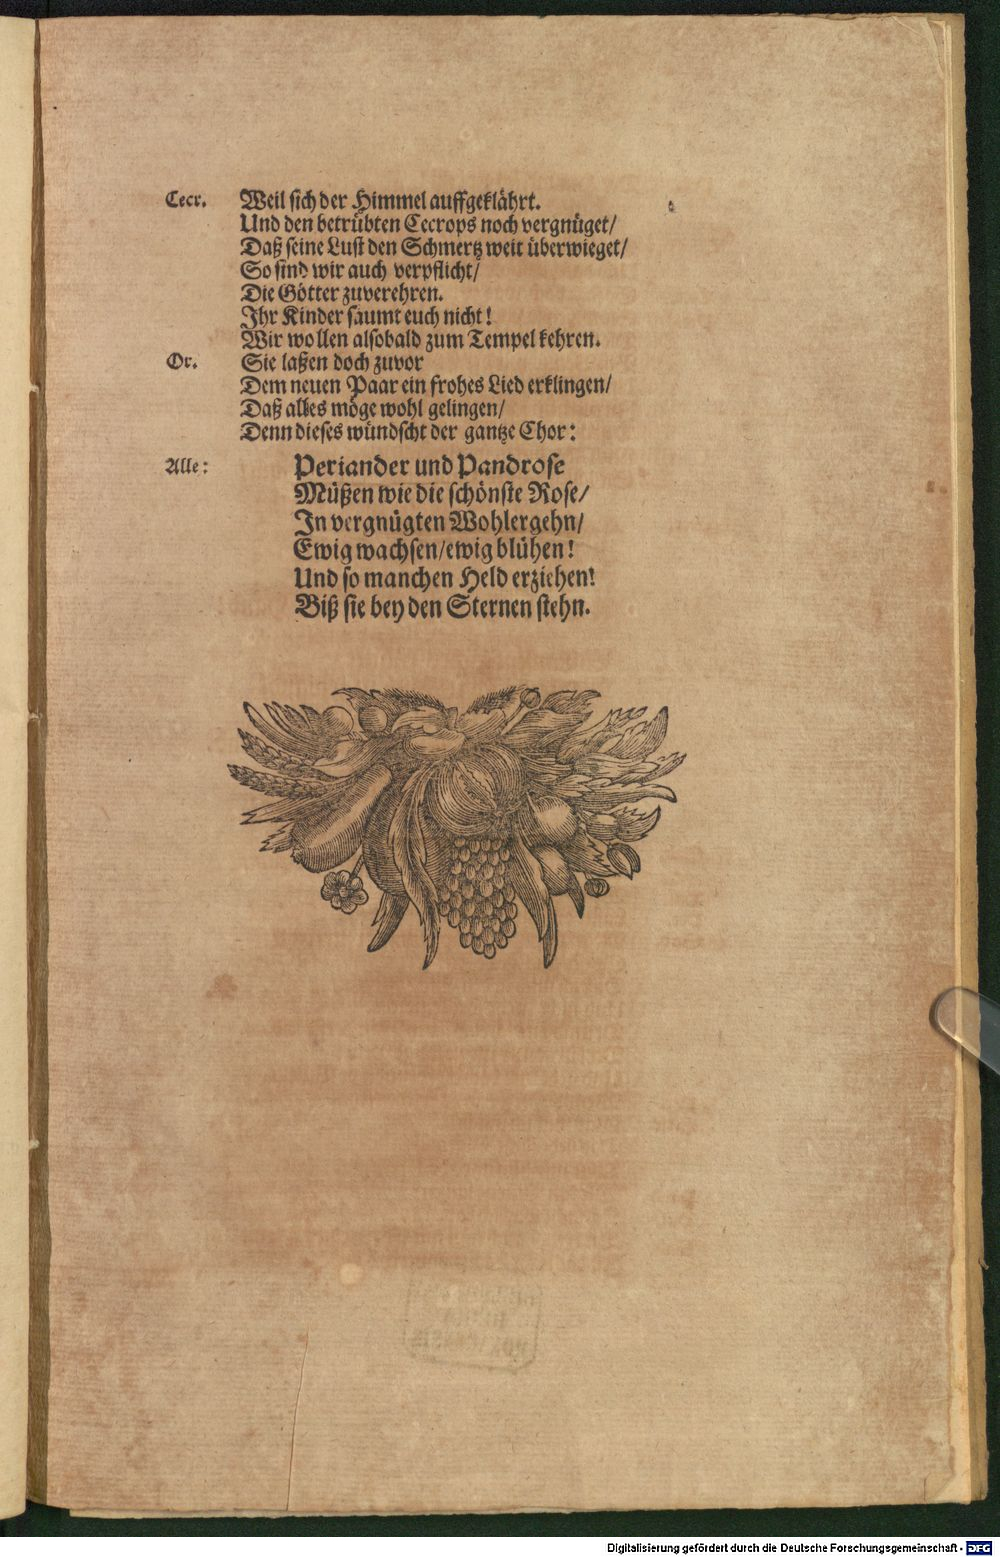 Cecr. Weil sich der Himmel auffgeklährt.
Und den betrübten Cecrops noch vergnüget/
Daß seine Lust den Schmertz weit überwieget/
So sind wir auch verpflicht/
Die Götter zuverehren.
Ihr Kinder säumt euch nicht!
Wir wollen alsobald zum Tempel kehren.
Or. Sie laßen doch zuvor
Dem neuen Paar ein frohes Lied erklingen/
Daß alles möge wohl gelingen/
Denn dieses wündscht der gantze Chor:
Alle: Periander und Pandrose
Müßen wie die schönste Rose/
In vergnügten Wohlergehn/
Ewig wachsen/ewig blühen!
Und so manchen Held erziehen!
Biß sie bey den Sternen stehn.
Digitalisierung gefördert durch die Deutsche Forschungsgemeinschaft - DFG